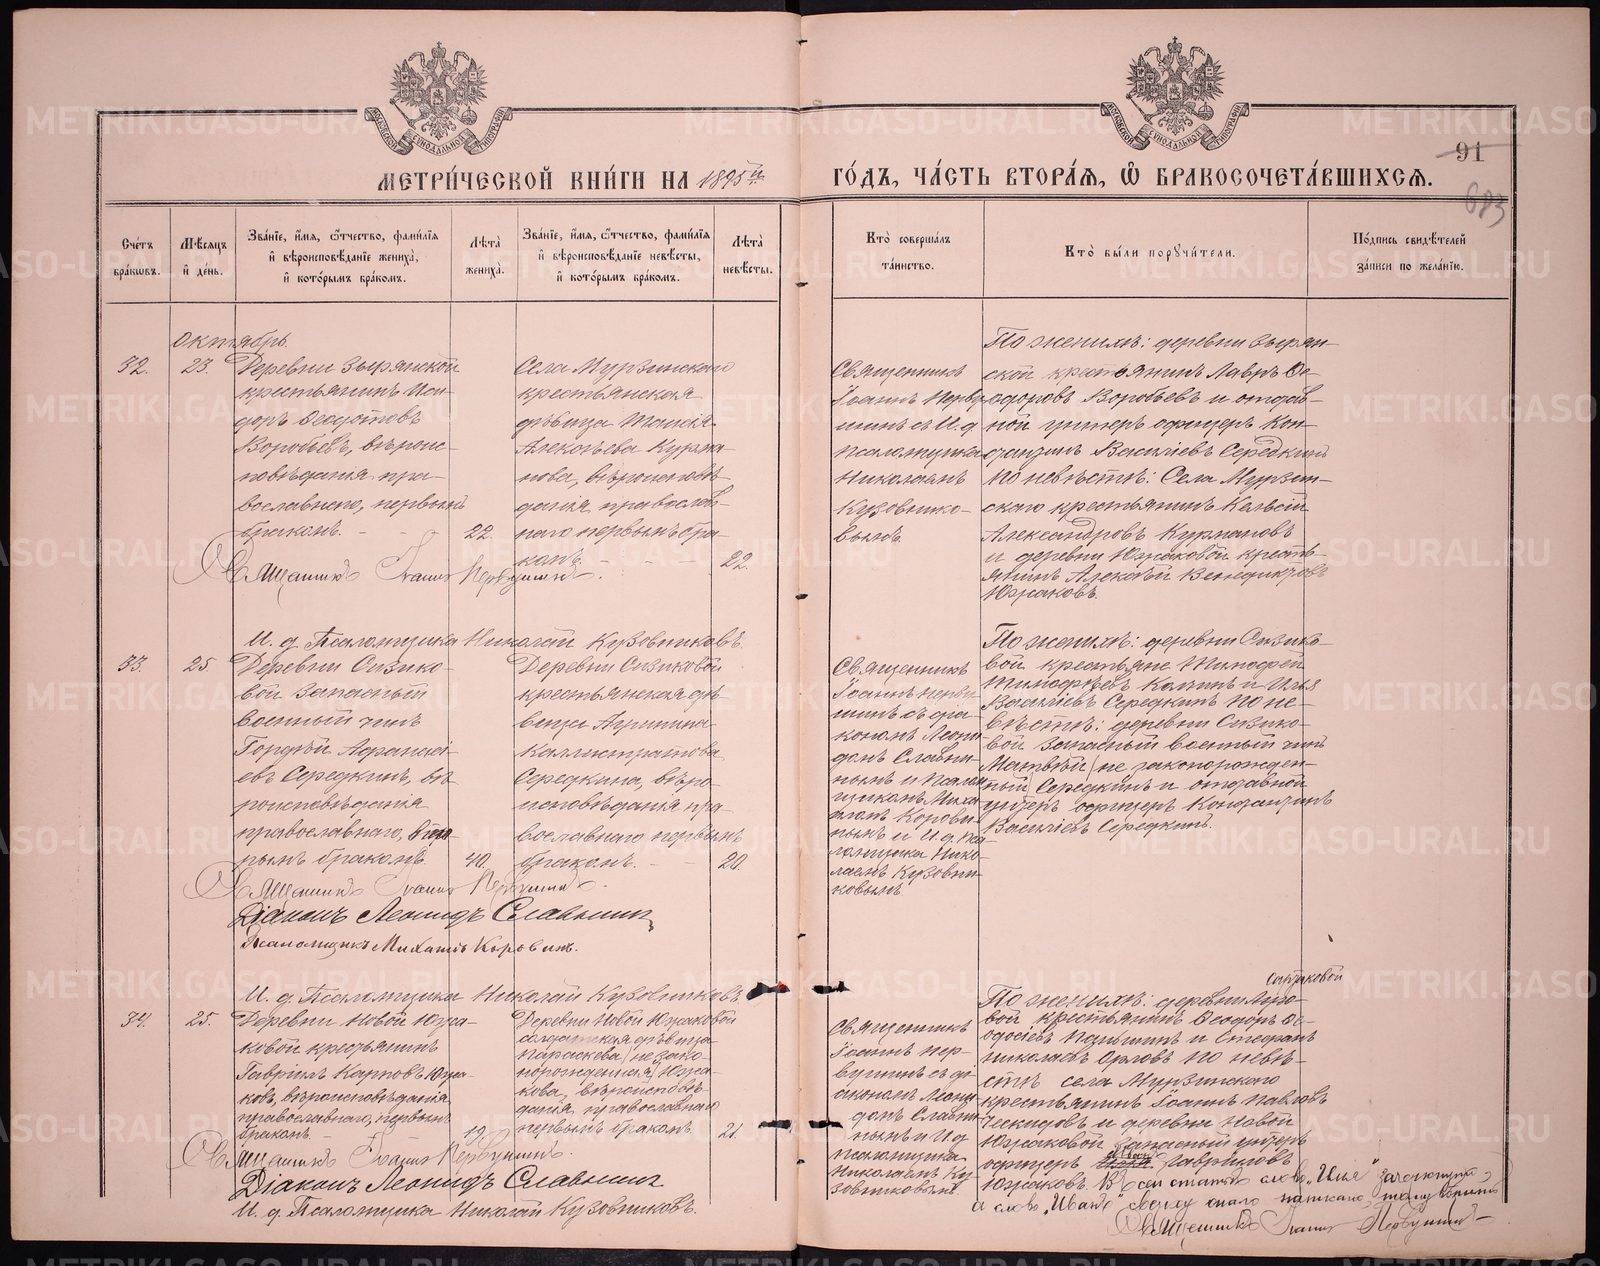 МЕТРИ́ЧЕСКОЙ КНИ́ГИ НА 1895й
ГО́ДЪ, ЧА́СТЬ ВТОРА́Ѧ, Ѿ БРАКОСОЧЕТА́ВШИХСѦ.
91
683
Сче́тъ бра́ковъ.
Мѣ́сѧцъ и҆ де́нь.
Зва́нїе, и҆́мѧ, ѻ҆́тчество, фами́лїѧ и҆ вѣроисповѣ́данїе жениха̀, и҆ кото́рымъ бра́комъ.
Лѣ́та жениха̀.
Зва́нїе, и҆́мѧ, ѻ҆́тчество, фами́лїѧ и҆ вѣроисповѣ́данїе невѣ́сты, и҆ кото́рымъ бра́комъ.
Лѣ́та невѣ́сты.
Кто̀ соверша́лъ та́инство.
Кто̀ бы́ли порꙋчи́тели.
По́дпись свидѣ́телей за́писи по жела́нїю.
октябрь
32.
23.
Деревни Зырянской
крестьянинъ Иси-
доръ Ѳедотовъ
Воробьевъ, вѣроис-
повѣданія пра-
вославнаго, первымъ
бракомъ.
22.
Села Мурзинскаго
крестьянская
дѣвица Таисія
Алексѣева Курма-
нова, вѣроисповѣ-
данія православ-
наго первымъ бра-
комъ.
22.
Священникъ
Іоаннъ Перву-
шинъ съ И. д
псаломщика
Николаемъ
Кузовнико-
вымъ.
По женихѣ: деревни Зырян-
ской крестьянинъ Лавръ Ѳе-
одоровъ Воробьевъ и отстав-
ной унтеръ офицеръ Кон-
стантинъ Василіевъ Середкинъ
По невѣстѣ: Села Мурзин-
скаго крестьянинъ
Александровъ Курмановъ
и деревни Южаковой кресть-
янинъ Алексѣй Венедиктовъ
Южаковъ.
Священникъ Іоаннъ Первушинъ.
И. д. Псаломщика Николай Кузовниковъ.
33.
25
Деревни Сизико-
вой запасный
военный чинъ
Гордѣй Аѳанасі-
евъ Середкинъ, вѣ-
роисповѣданія
православнаго, вто-
рымъ бракомъ.
40.
Деревни Сизиковой
крестьянская дѣ-
вица Агрипина
Каллистратова
Середкина, вѣро-
исповѣданія пра-
вославнаго первымъ
бракомъ.
20.
Священникъ
Іоаннъ Перву-
шинъ съ діа-
кономъ Леони-
домъ Славни-
нымъ и Псалом-
щикомъ Миха-
иломъ Корови-
нымъ и И. д. пса-
ломщика Нико-
лаемъ Кузовни-
ковымъ
По женихѣ: деревни Сизико-
вой крестьяне Тимофей
Тимофѣевъ и Илья
Василіевъ Середкинъ По не-
вѣстѣ: деревни Сизико-
вой запасный военный чинъ
Матвѣй (не законорожден-
ный) Середкинъ и отставной
унтеръ офицеръ Константинъ
Василіевъ Середкинъ.
Священникъ Іоаннъ Первушинъ.
Діаконъ Леонидъ Славнинъ
Псаломщикъ Михаилъ Коровинъ.
И. д. Псаломщика Николай Кузовниковъ.
34.
25.
Деревни Новой Южа-
ковой крестьянинъ
Гавріилъ Карповъ Южа-
ковъ, вѣроисповѣданія
православнаго, первымъ
бракомъ.
19.
Деревни Новой Южаковой
солдатская дѣвица
Параскева (не зако-
норожденная) Южа-
кова, вѣроисповѣ-
данія православнаго
первымъ бракомъ.
21.
Священникъ
Іоаннъ Пер-
вушинъ съ ді-
акономъ Леони-
домъ Славни-
нымъ и И. д
псаломщика
Николаемъ Ку-
зовниковымъ
По женихѣ: деревни
вой крестьянинъ Ѳеодоръ Ѳе-
одосіевъ и Стефанъ
Николаевъ Орловъ По невѣ-
стѣ села Мурзинскаго
крестьянинъ Іоаннъ Павловъ
и деревни Новой
Южаковой запасный унтеръ
офицеръ Гавриловъ
Южаковъ. В сей статьѣ слово „Илья“ зачеркнуто,
а слово „Иванъ“ сверху онаго написано,
Священникъ Іоаннъ Первушинъ
Священникъ Іоаннъ Первушинъ.
Діаконъ Леонидъ Славнинъ
И. д. Псаломщика Николай Кузовниковъ.
METRIKI.GASO-URAL.RU